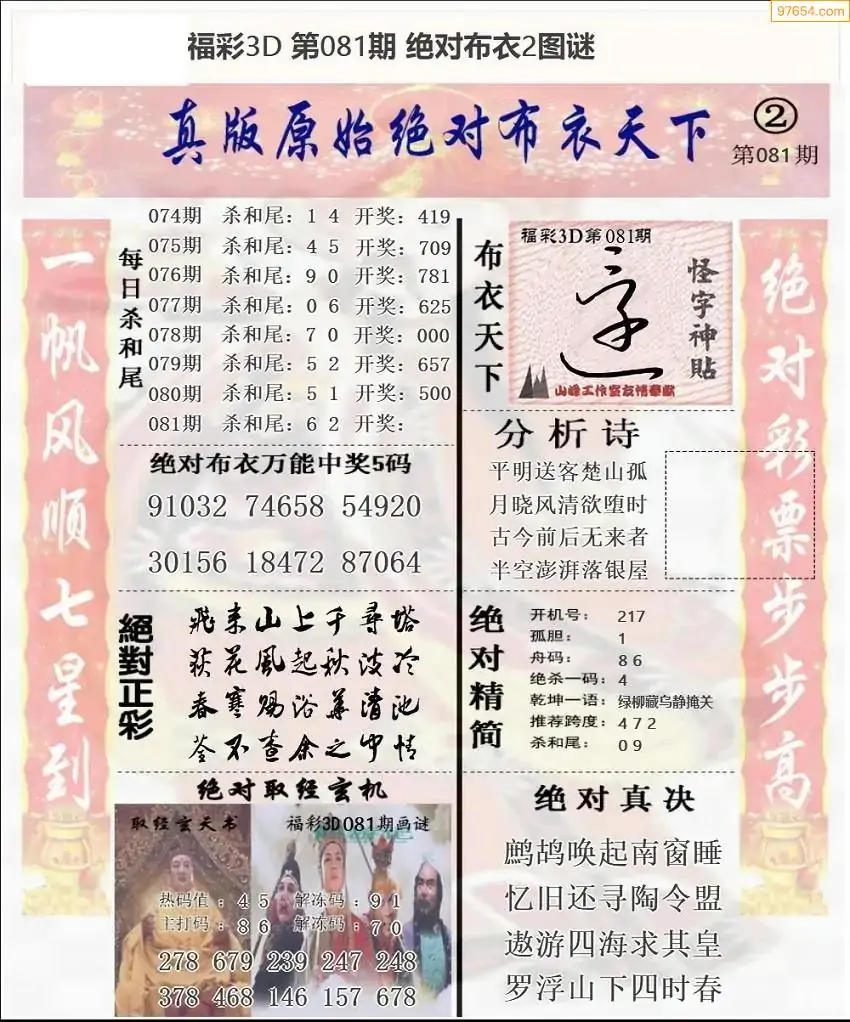 97654.com
福彩3D 第081期 绝对布衣2图谜
真版原始绝对布衣天下
②
第081期
一帆风顺七星到
每日杀和尾
074期 杀和尾：1 4 开奖：419
075期 杀和尾：4 5 开奖：709
076期 杀和尾：9 0 开奖：781
077期 杀和尾：0 6 开奖：625
078期 杀和尾：7 0 开奖：000
079期 杀和尾：5 2 开奖：657
080期 杀和尾：5 1 开奖：500
081期 杀和尾：6 2 开奖：
绝对布衣万能中奖5码
91032 74658 54920
30156 18472 87064
絕對正彩
飛来山上千尋塔
荻花風起秋波冷
春寒赐浴華清池
荃不查余之中情
绝对取经玄机
取经玄天书
福彩3D081期画谜
热码值：4 5 解冻码：9 1
主打码：8 6 解冻码：7 0
278 679 239 247 248
378 468 146 157 678
布衣天下
福彩3D第081期
怪字神貼
山峰工作室友情奉献
分析诗
平明送客楚山孤
月晓风清欲堕时
古今前后无来者
半空澎湃落银屋
绝对精简
开机号： 217
孤胆： 1
舟码： 8 6
绝杀一码：4
乾坤一语：绿柳藏乌静掩关
推荐跨度：4 7 2
杀和尾： 0 9
绝对真决
鹧鸪唤起南窗睡
忆旧还寻陶令盟
遨游四海求其皇
罗浮山下四时春
绝对彩票步步高